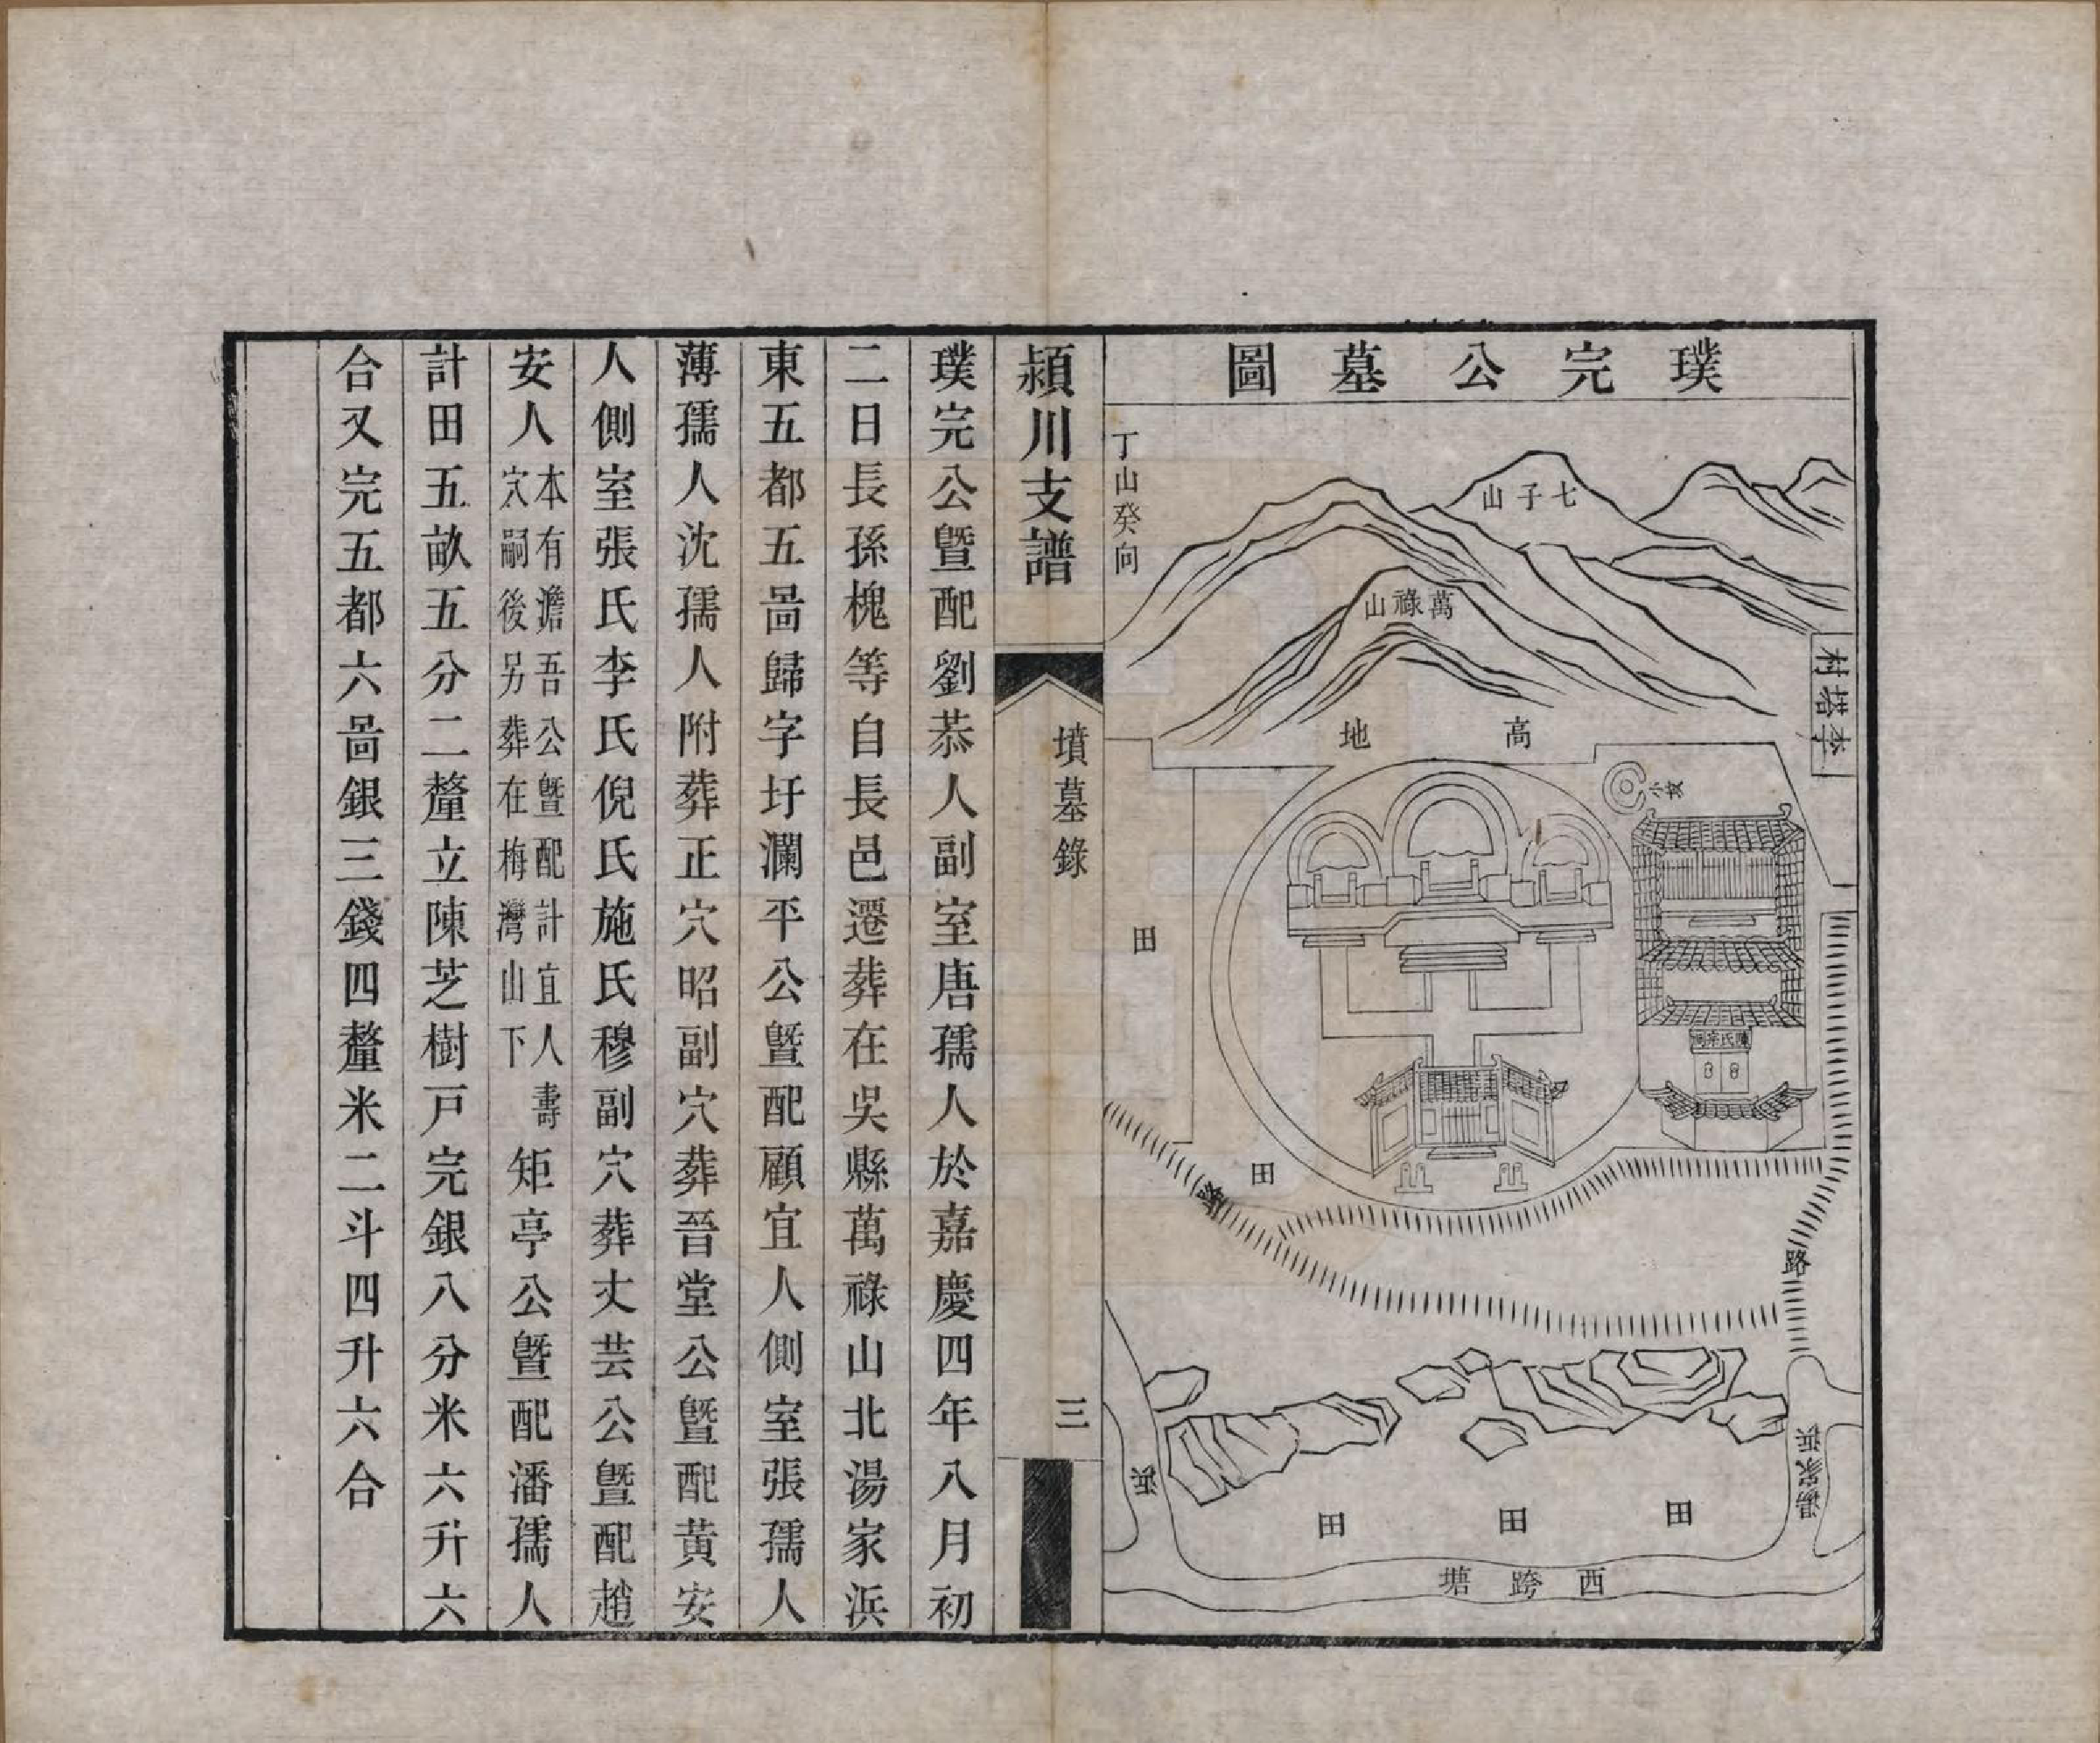 璞完公墓圖
丁山癸向
七子山
萬祿山
李塔村
高地
小墳
田
陳氏宗祠
田
路
路
浜
湯家浜
田田田
西跨塘
潁川支譜
墳墓錄
三
璞完公暨配劉恭人副室唐孺人於嘉慶四年八月初
二日長孫槐等自長邑遷葬在吳縣萬祿山北湯家浜
東五都五啚歸字圩瀾平公暨配顧宜人側室張孺人
薄孺人沈孺人附葬正穴昭副穴葬晉堂公暨配黃安
人側室張氏李氏倪氏施氏穆副穴葬丈芸公暨配趙
安人本有澹吾公暨配計宜人壽穴嗣後另葬在梅灣山下矩亭公暨配潘孺人
計田五畝五分二釐立陳芝樹戶完銀八分米六升六
合又完五都六啚銀三錢四釐米二斗四升六合